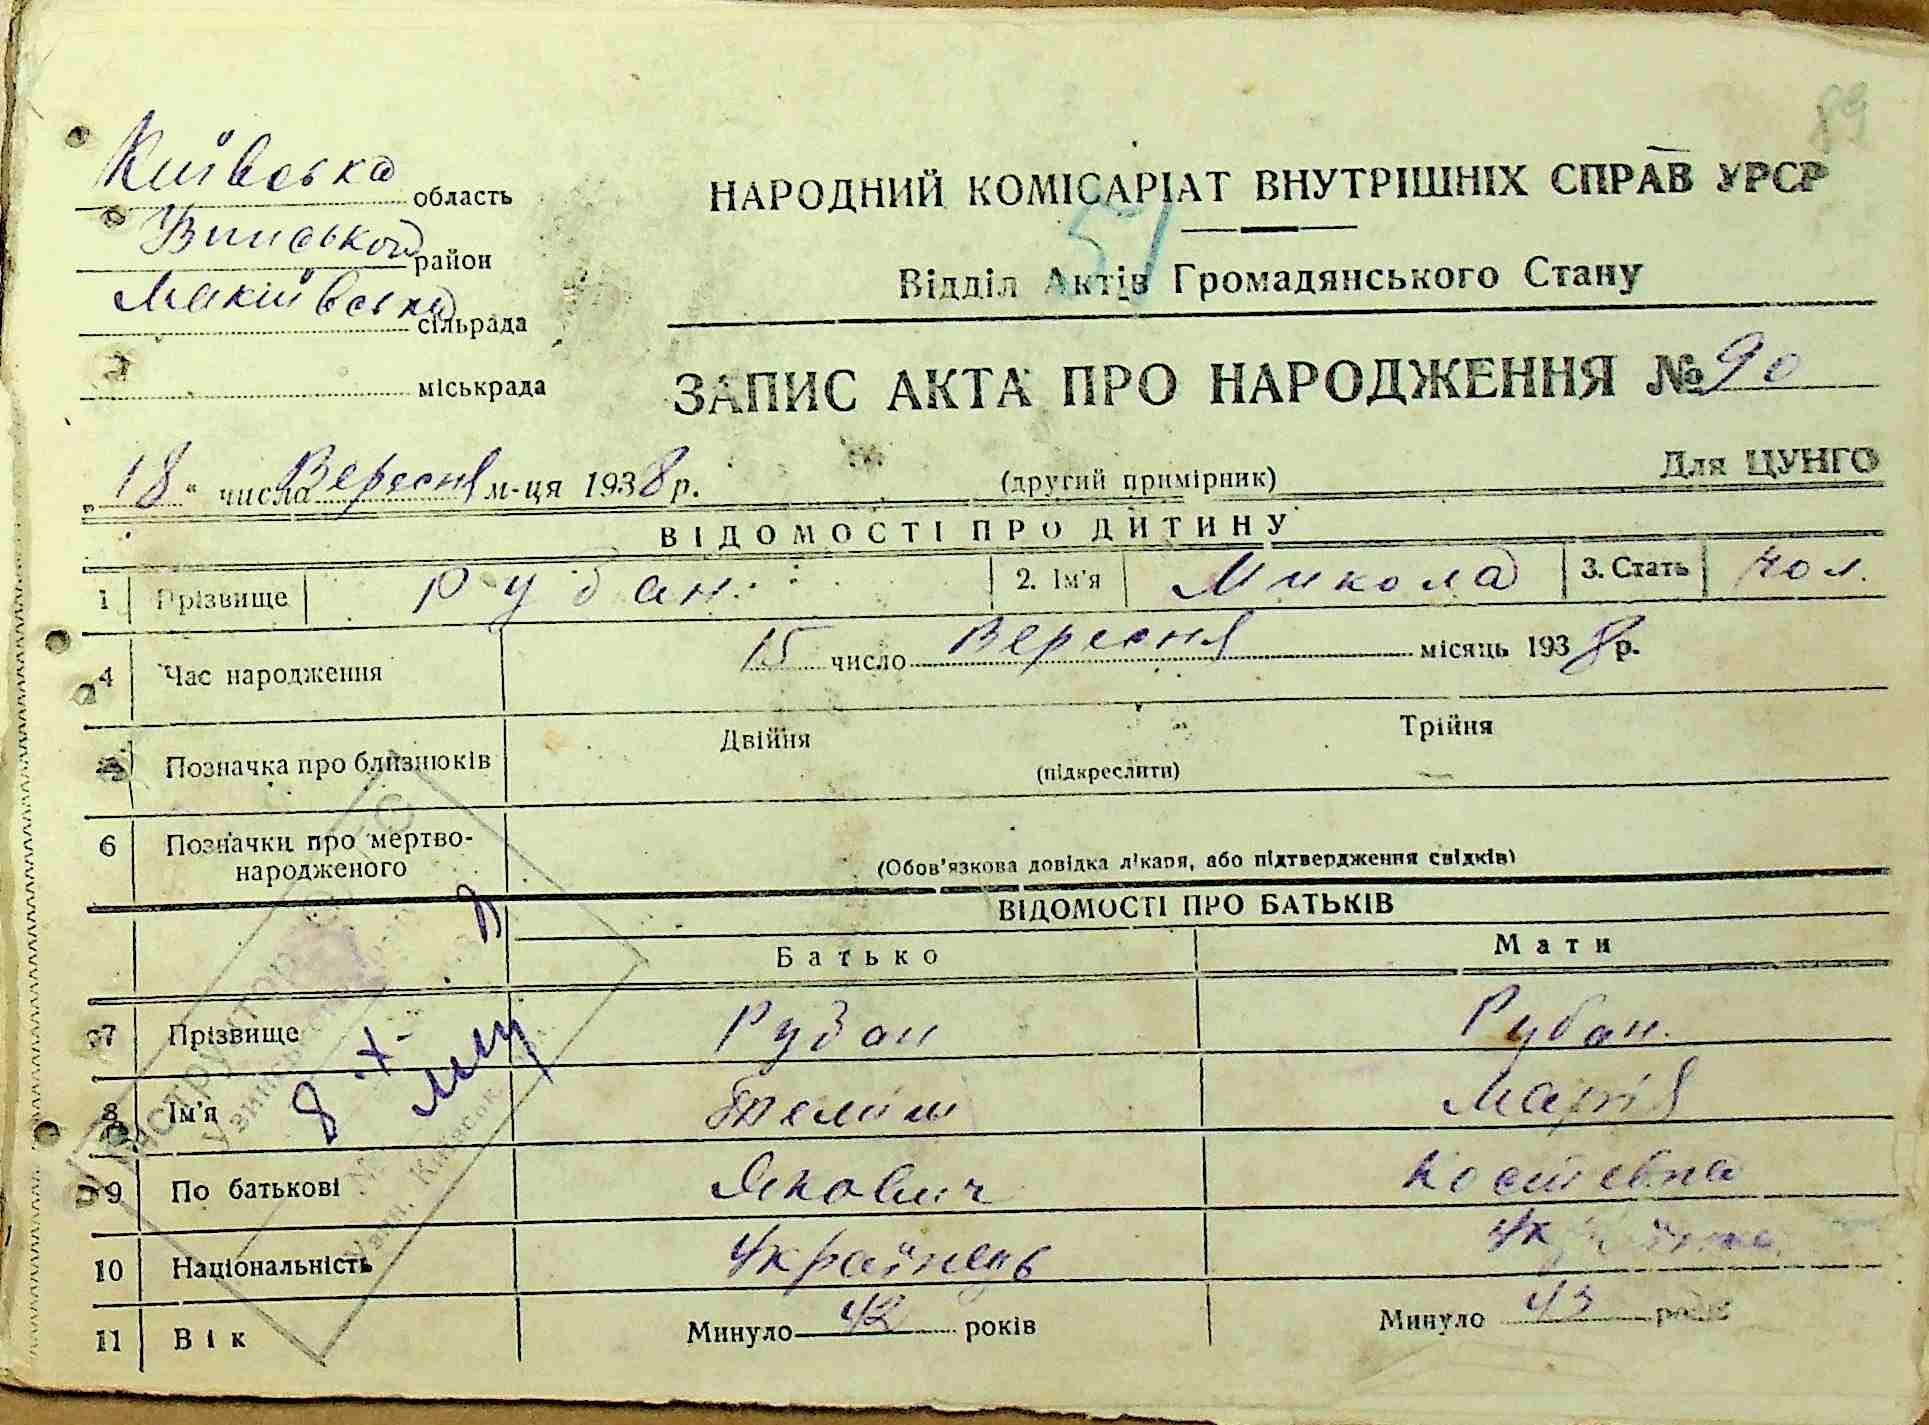 89
Київська область
район
Макіївська сільрада
міськрада
НАРОДНИЙ КОМІСАРІАТ ВНУТРІШНІХ СПРАВ УРСР
51
Відділ Актів Громадянського Стану
ЗАПИС АКТА ПРО НАРОДЖЕННЯ № 90
„18" числа Вересня м-ця 1938 р. (другий примірник) Для ЦУНГО
ВІДОМОСТІ ПРО ДИТИНУ
1 Прізвище Рубан 2. Ім'я Микола 3. Стать чол.
4 Час народження 15 число Вересня місяць 1938 р.
Позначка про близнюків Двійня Трійня
(підкреслити)
6 Позначки про мертво-
народженого
(Обов'язкова довідка лікаря, або підтвердження свідків)
ВІДОМОСТІ ПРО БАТЬКІВ
Батько Мати
7 Прізвище Рубан Рубан.
8 Ім'я Марія
9 По батькові Якович Костевна
10 Національність Українець
11 Вік Минуло 42 років Минуло 43 років
Інструктор
8 X